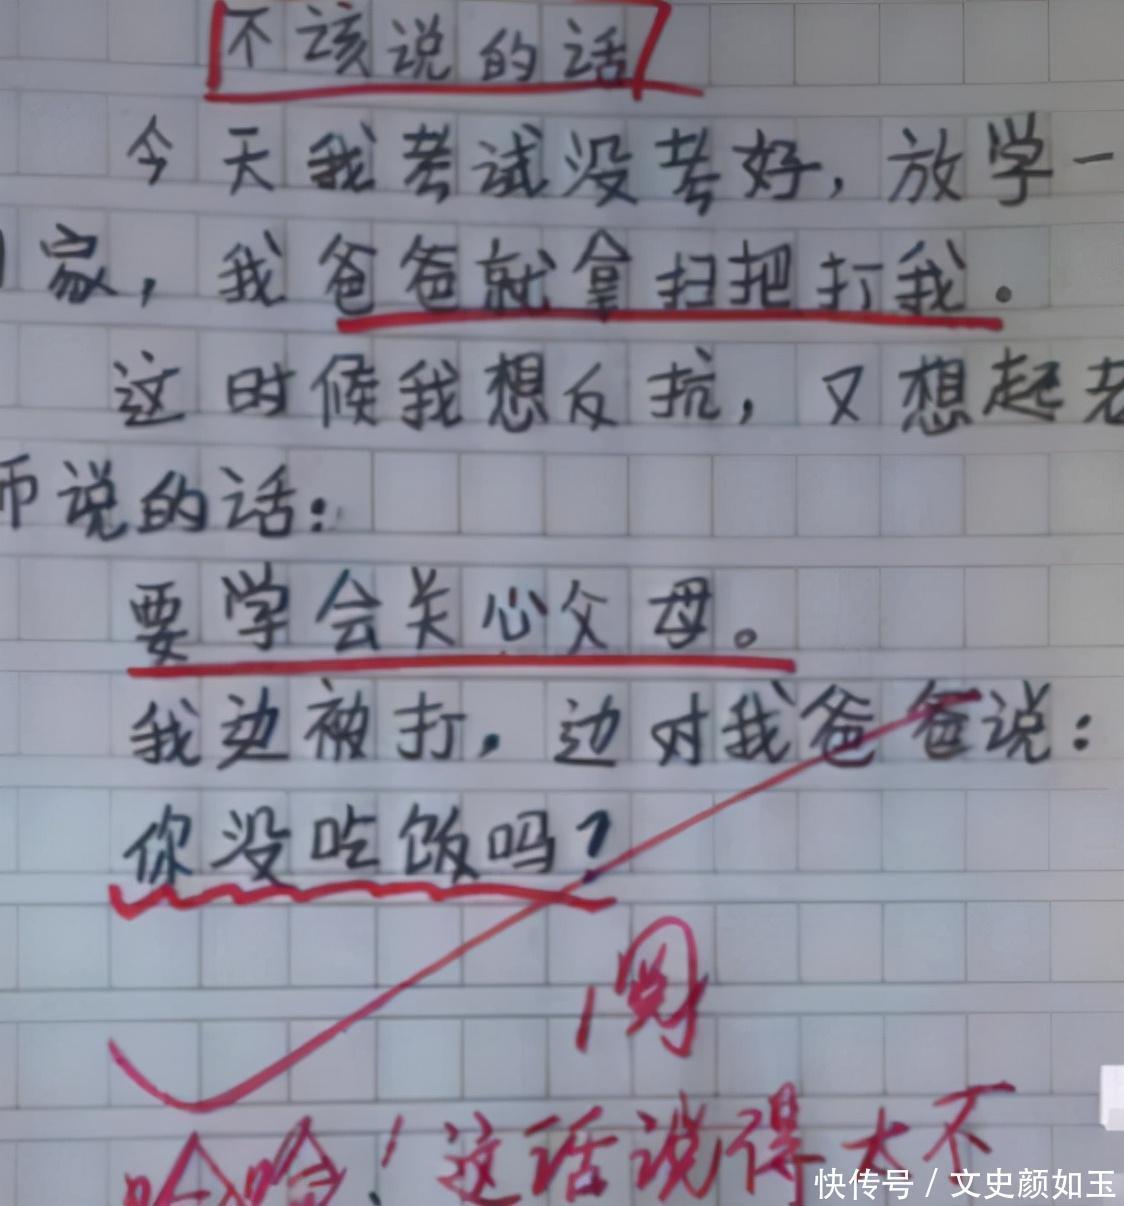 不该说的话
今天我考试没考好，放学一
家，我爸爸就拿扫把打我。
这时候我想反抗，又想起老
师说的话：
要学会关心父母。
我边被打，边对我爸爸说：
你没吃饭吗？
阅
哈哈！这话说得大不
快传号/文史颜如玉